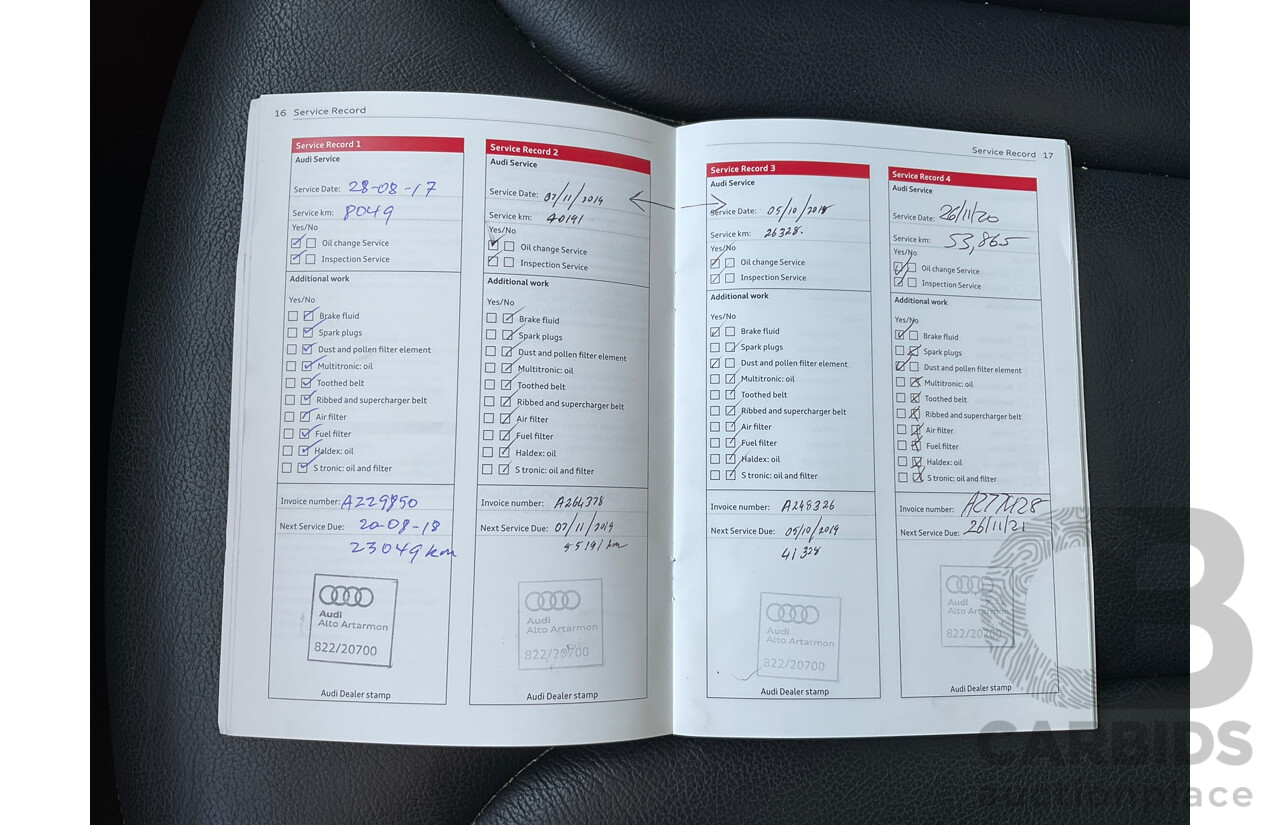 16 Service Record
Service Record 1
Audi Service
Service Date: 28-08-17
Service km: 8049
Yes/No
Oil change Service
Inspection Service
Additional work
Yes/No
Brake fluid
Spark plugs
Dust and pollen filter element
Multitronic: oil
Toothed belt
Ribbed and supercharger belt
Air filter
Fuel filter
Haldex: oil
S tronic: oil and filter
Invoice number: A229850
Next Service Due: 20-08-18
23049 km
Audi
Alto Artarmon
822/20700
Audi Dealer stamp
Service Record 2
Audi Service
Service Date: 07/11/2019
Service km: 40191
Yes/No
Oil change Service
Inspection Service
Additional work
Yes/No
Brake fluid
Spark plugs
Dust and pollen filter element
Multitronic: oil
Toothed belt
Ribbed and supercharger belt
Air filter
Fuel filter
Haldex: oil
S tronic: oil and filter
Invoice number: A264378
Next Service Due: 07/11/2019
55191 km
Audi
Alto Artarmon
822/20700
Audi Dealer stamp
Service Record 17
Service Record 3
Audi Service
Service Date: 05/10/2018
Service km: 26328.
Yes/No
Oil change Service
Inspection Service
Additional work
Yes/No
Brake fluid
Spark plugs
Dust and pollen filter element
Multitronic: oil
Toothed belt
Ribbed and supercharger belt
Air filter
Fuel filter
Haldex: oil
S tronic: oil and filter
Invoice number: A248326
Next Service Due: 05/10/2019
41328
Audi
Alto Artarmon
822/20700
Audi Dealer stamp
Service Record 4
Audi Service
Service Date: 26/11/20
Service km: 53,865
Yes/No
Oil change Service
Inspection Service
Additional work
Yes/No
Brake fluid
Spark plugs
Dust and pollen filter element
Multitronic: oil
Toothed belt
Ribbed and supercharger belt
Air filter
Fuel filter
Haldex: oil
S tronic: oil and filter
Invoice number:
Next Service Due: 26/11/21
Audi
Alto Artarmon
822/20700
Audi Dealer stamp
CB
CARBIDS
auctionplace